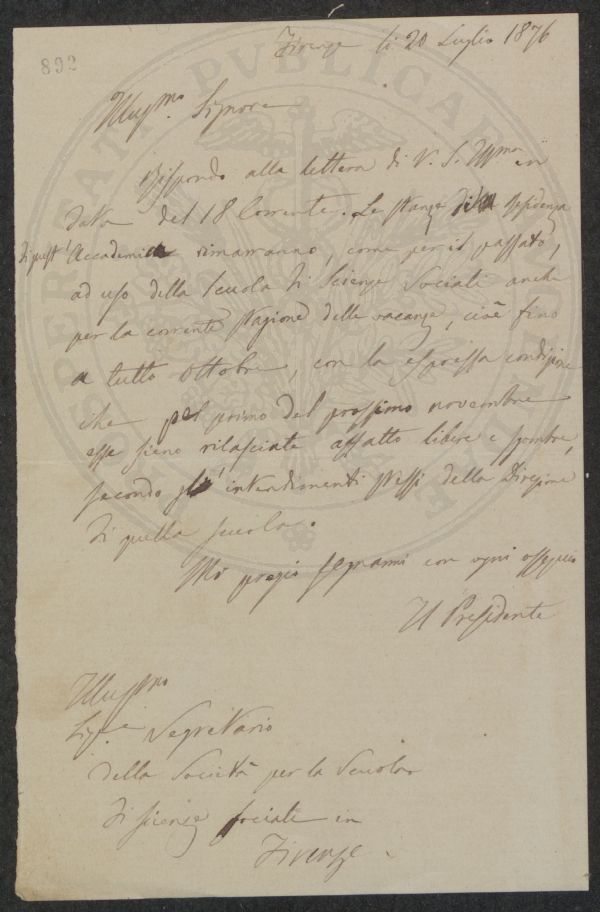 892
Firenze li 20 Luglio 1876
Illus.mo Signore
Rispondo alla lettera di V. S. Ill.ma in
data del 18 Corrente. Le stanze di residenza
di quest' Accademia rimarranno, come per il passato,
ad uso della Scuola di Scienze Sociali anche
per la corrente stagione delle vacanze, cioè fino
a tutto ottobre, con la espressa condizione
che pel primo del prossimo novembre
esse sieno rilasciate affatto libere e sgombre,
secondo gl' intendimenti stessi della Direzione
di quella scuola.
Mi pregio segnarmi con ogni ossequio
Il Presidente
Illustrmo
Sig.e Segretario
della Società per la Scuola
di scienze sociali in
Firenze
PROSPERITATI PUBLICAE